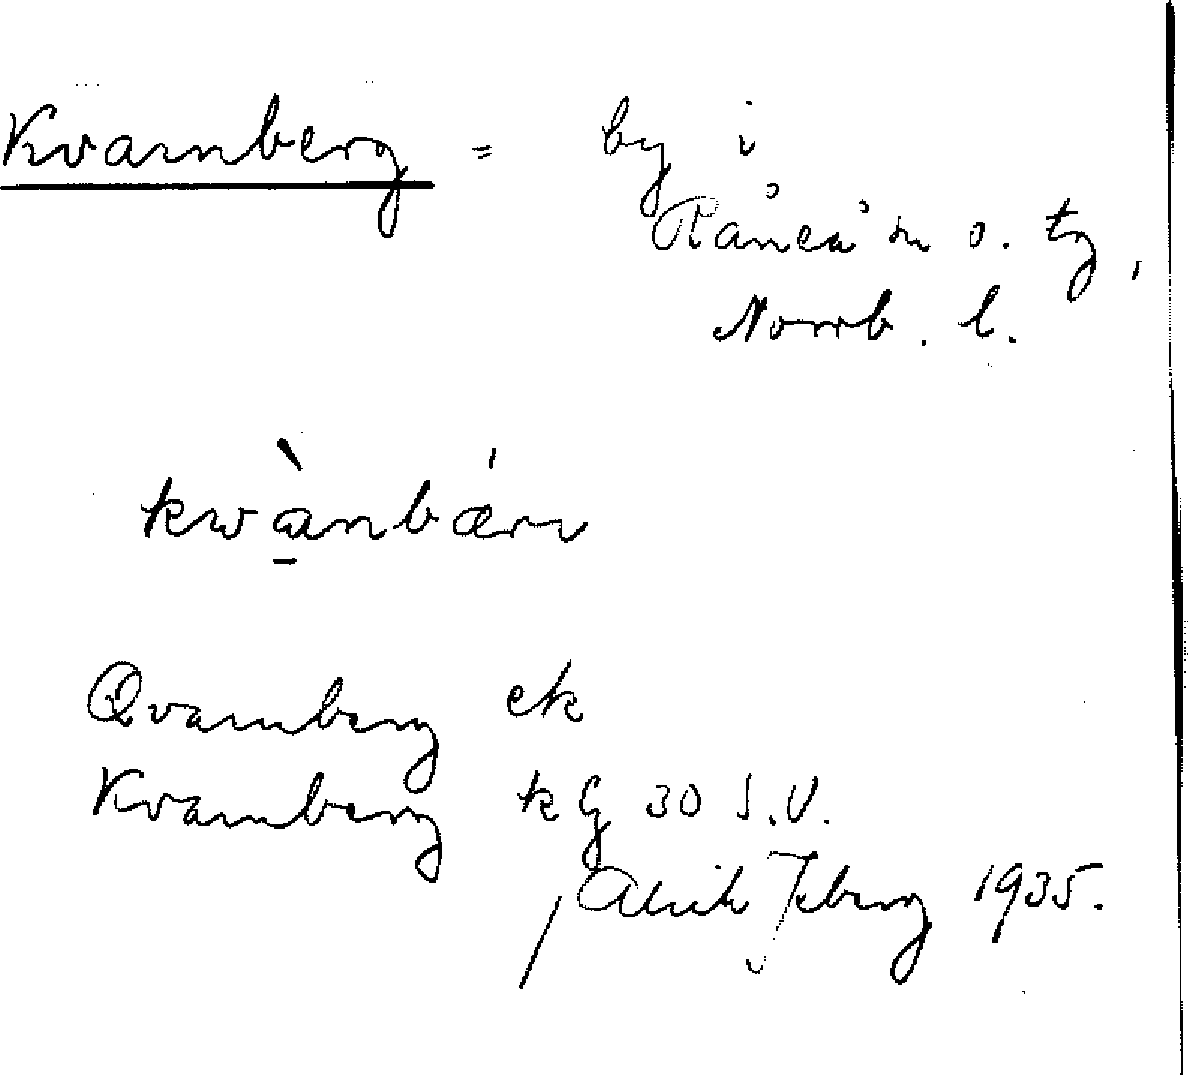 Kvarnberg = by i
Råneå sn o. tg,
Norrb. l.
kwànbárv
Qvarnberg ek
Kvarnberg kG 30 S.V.
/
1935.